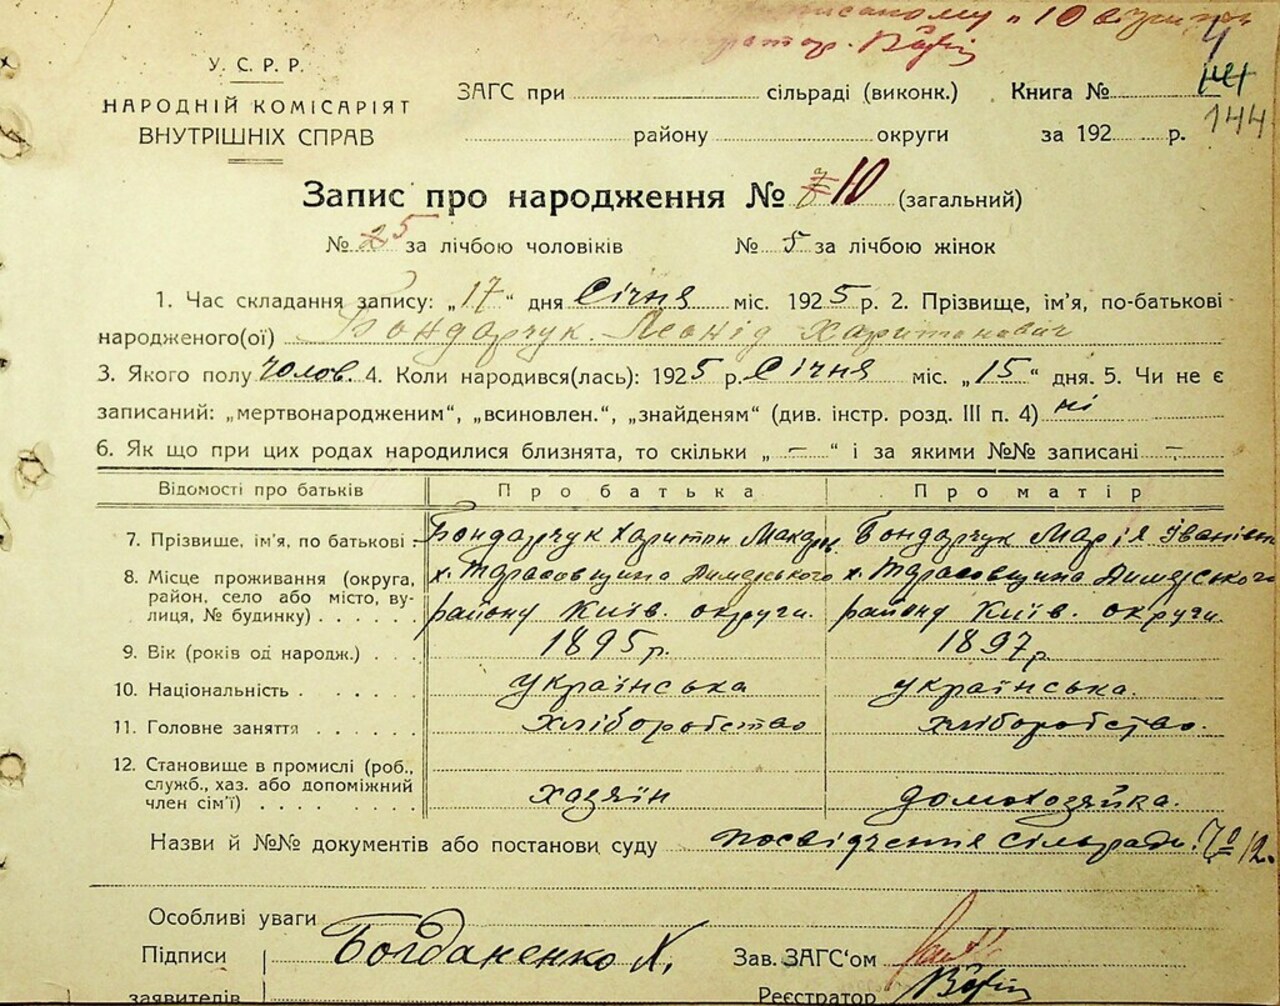 писаному и 10
У. С. Р. Р.
НАРОДНІЙ КОМІСАРІЯТ
ВНУТРІШНІХ СПРАВ
ЗАГС при сільраді (виконк.) Книга № 144
району округи за 192 р.
144
Запис про народження № 7 10 (загальний)
№ 2 5 за лічбою чоловіків № 5 за лічбою жінок
1. Час складання запису: „17“ дня Січня міс. 1925 р. 2. Прізвище, ім’я, по-батькові
народженого(ої) Бондарчук Леонід Харитонович
3. Якого полу чолов. 4. Коли народився(лась): 1925 р. Січня міс. „15“ дня. 5. Чи не є
записаний: „мертвонародженим“, „всиновлен.“, „знайденям“ (див. інстр. розд. III п. 4) ні
6. Як що при цих родах народилися близнята, то скільки „ — “ і за якими №№ записані —
Відомості про батьків Про батька Про матір
7. Прізвище, ім’я, по батькові . Бондарчук Харитон Макаров. Бондарчук Марія Іванівна
8. Місце проживання (округа, район, село або місто, вулиця, № будинку) х. Тарасовщина Димерського району Київ. округи. х. Тарасовщина Димерського району Київ. округи.
9. Вік (років од народж.) 1895 р. 1897 р.
10. Національність українська українська.
11. Головне заняття хліборобство хліборобство.
12. Становище в промислі (роб., служб., хаз. або допоміжний член сім’ї) хазяїн домохозяйка.
Назви й №№ документів або постанови суду посвідчення сільради № 12.
Особливі уваги
Підписи Богданенко Х. Зав. ЗАГС‘ом
заявителів Реєстратор